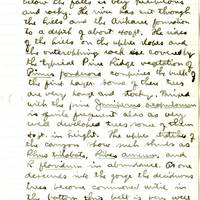 below the falls is very precipitous
and rocky. The river has cut through
the hills and the Arikaree formation
to a depth of about 400 ft. The sides
of the hills on the upper slopes and
the outcropping rock are covered by
the typical Pine Ridge vegetation of
Pinus ponderosa comprises the bulk of
the pine larger. Some of these trees
are very large and stocky. Mixed
with the pine Juniperus scopulorum
is quite frequent also as very
well developed trees some of them
40 ft in height. The upper stretches of
the canyon show such shrubs as
Rhus trilobata, Ribes aureum, and
R. floridum in abundance. As one
descends into the gorge the deciduous
trees become commoner until in
the bottom this belt is